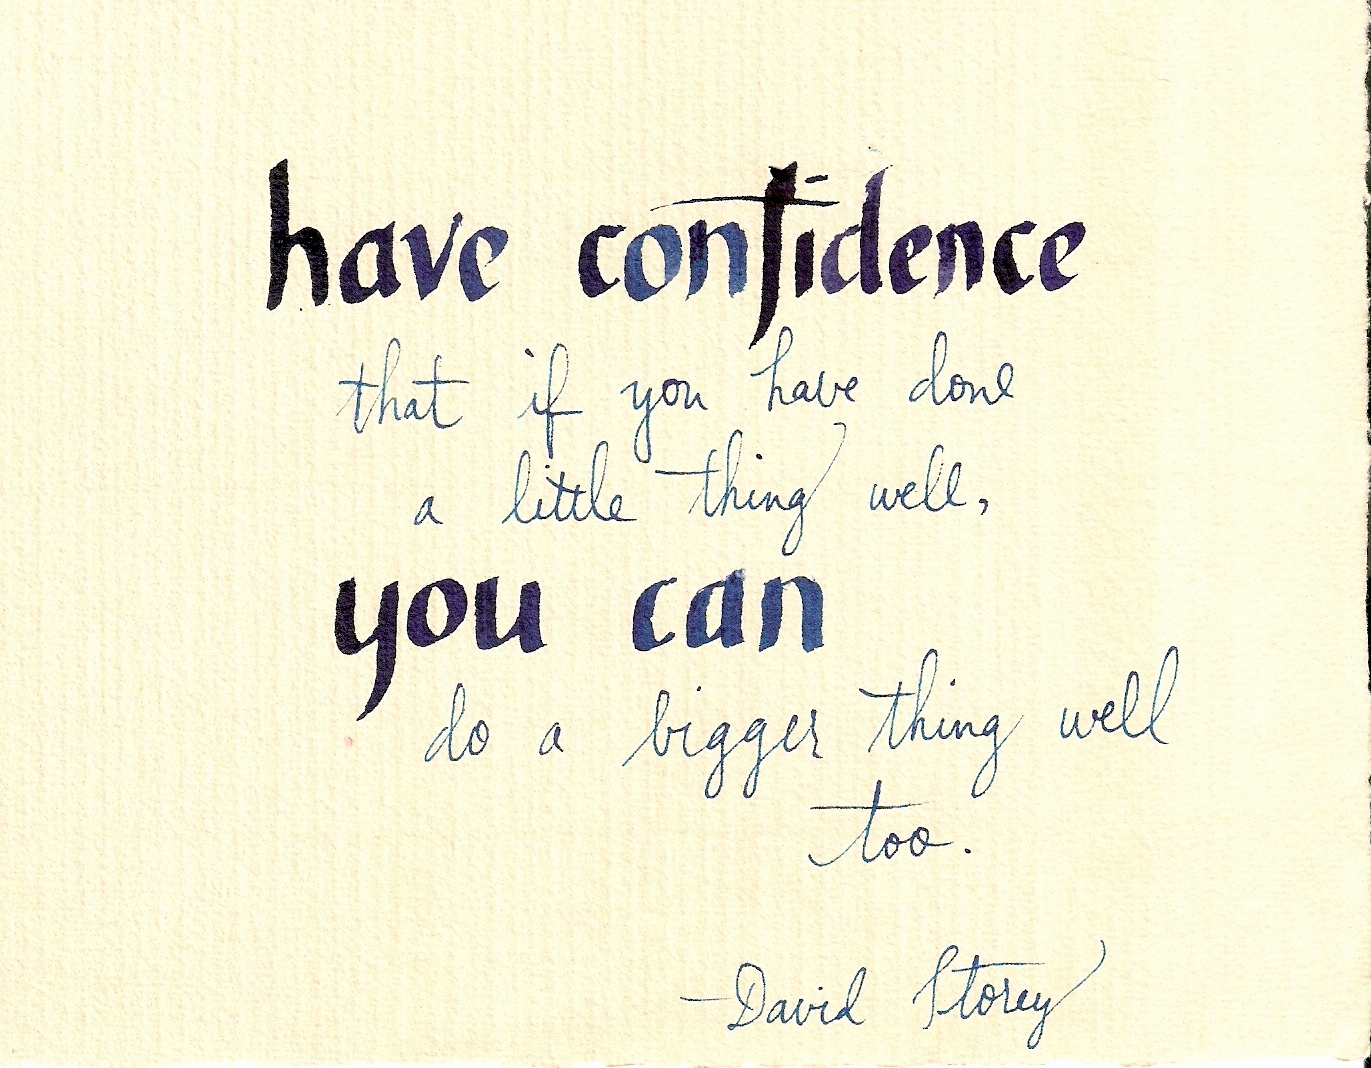 have confidence
that if you have done
a little thing well,
you can
do a bigger thing well
too.
—David Storey